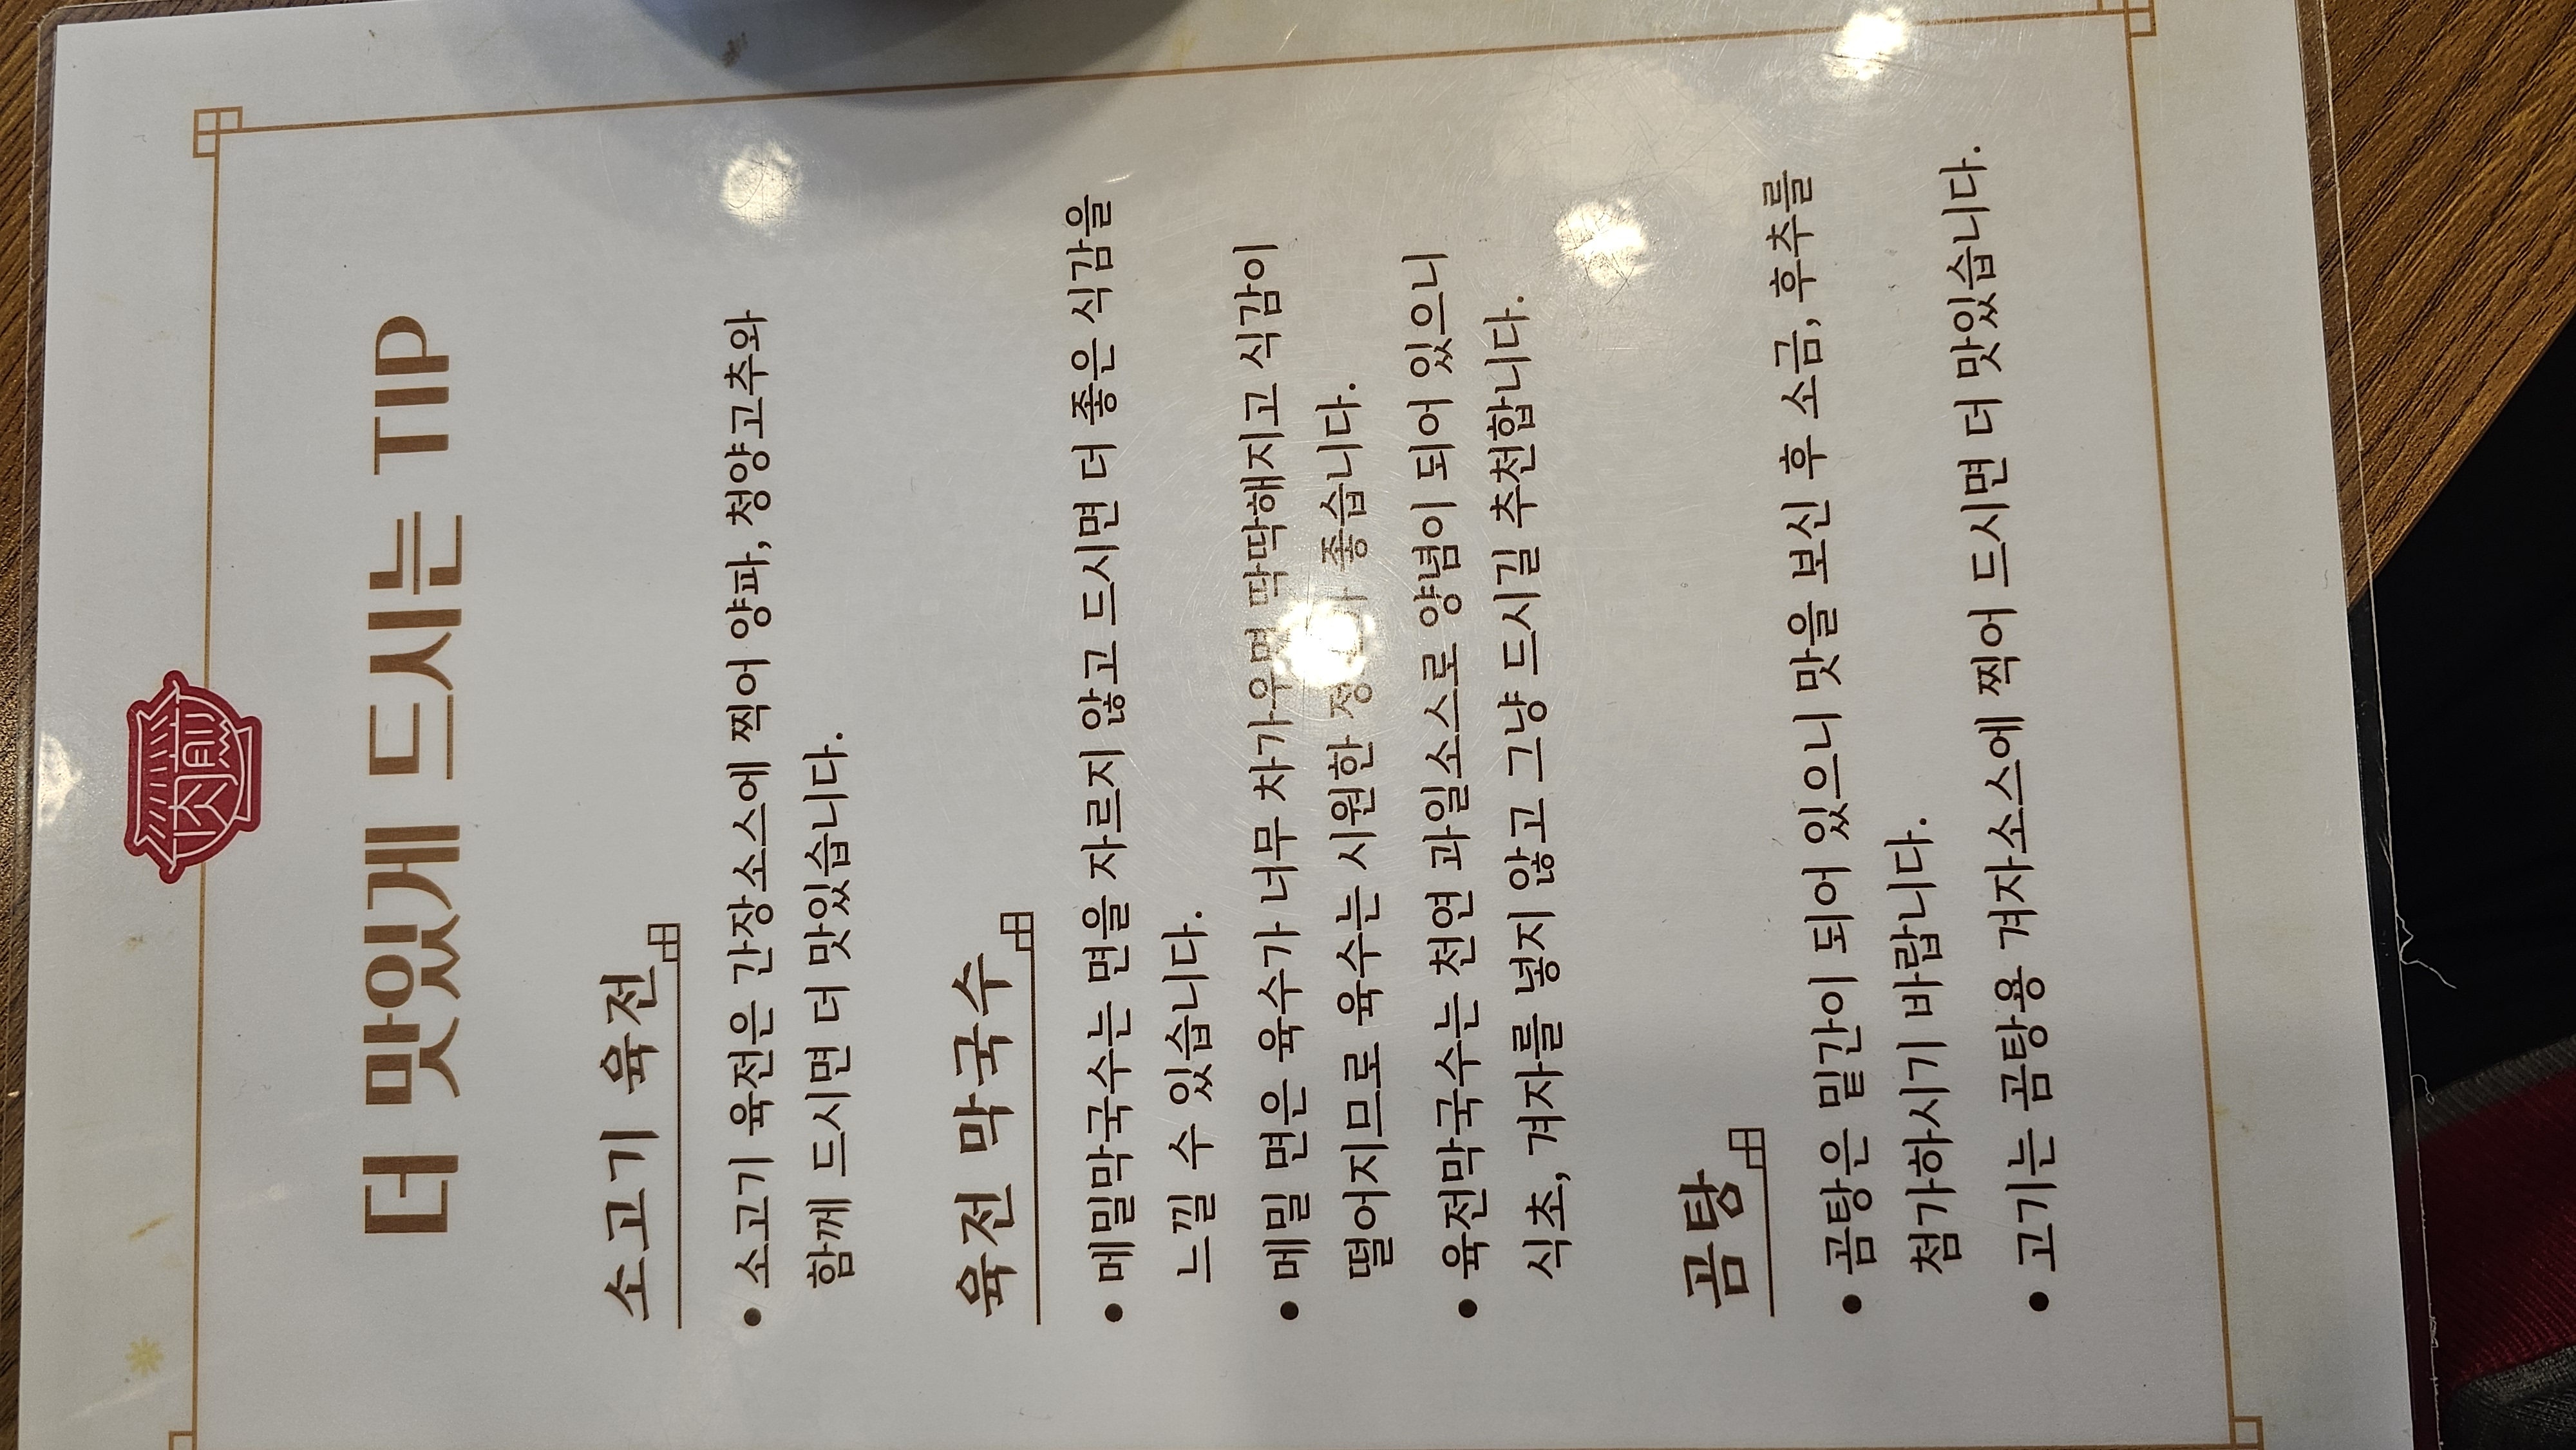 肉煎
더 맛있게 드시는 TIP
소고기 육전
• 소고기 육전은 간장소스에 찍어 양파, 청양고추와
함께 드시면 더 맛있습니다.
육전 막국수
• 메밀막국수는 면을 자르지 않고 드시면 더 좋은 식감을
느낄 수 있습니다.
• 메밀 면은 육수가 너무 차가우면 딱딱해지고 식감이
떨어지므로 육수는 시원한 좋습니다.
• 육전막국수는 천연 과일소스로 양념이 되어 있으니
식초, 겨자를 넣지 않고 그냥 드시길 추천합니다.
곰탕
• 곰탕은 밑간이 되어 있으니 맛을 보신 후 소금, 후추를
첨가하시기 바랍니다.
• 고기는 곰탕용 겨자소스에 찍어 드시면 더 맛있습니다.